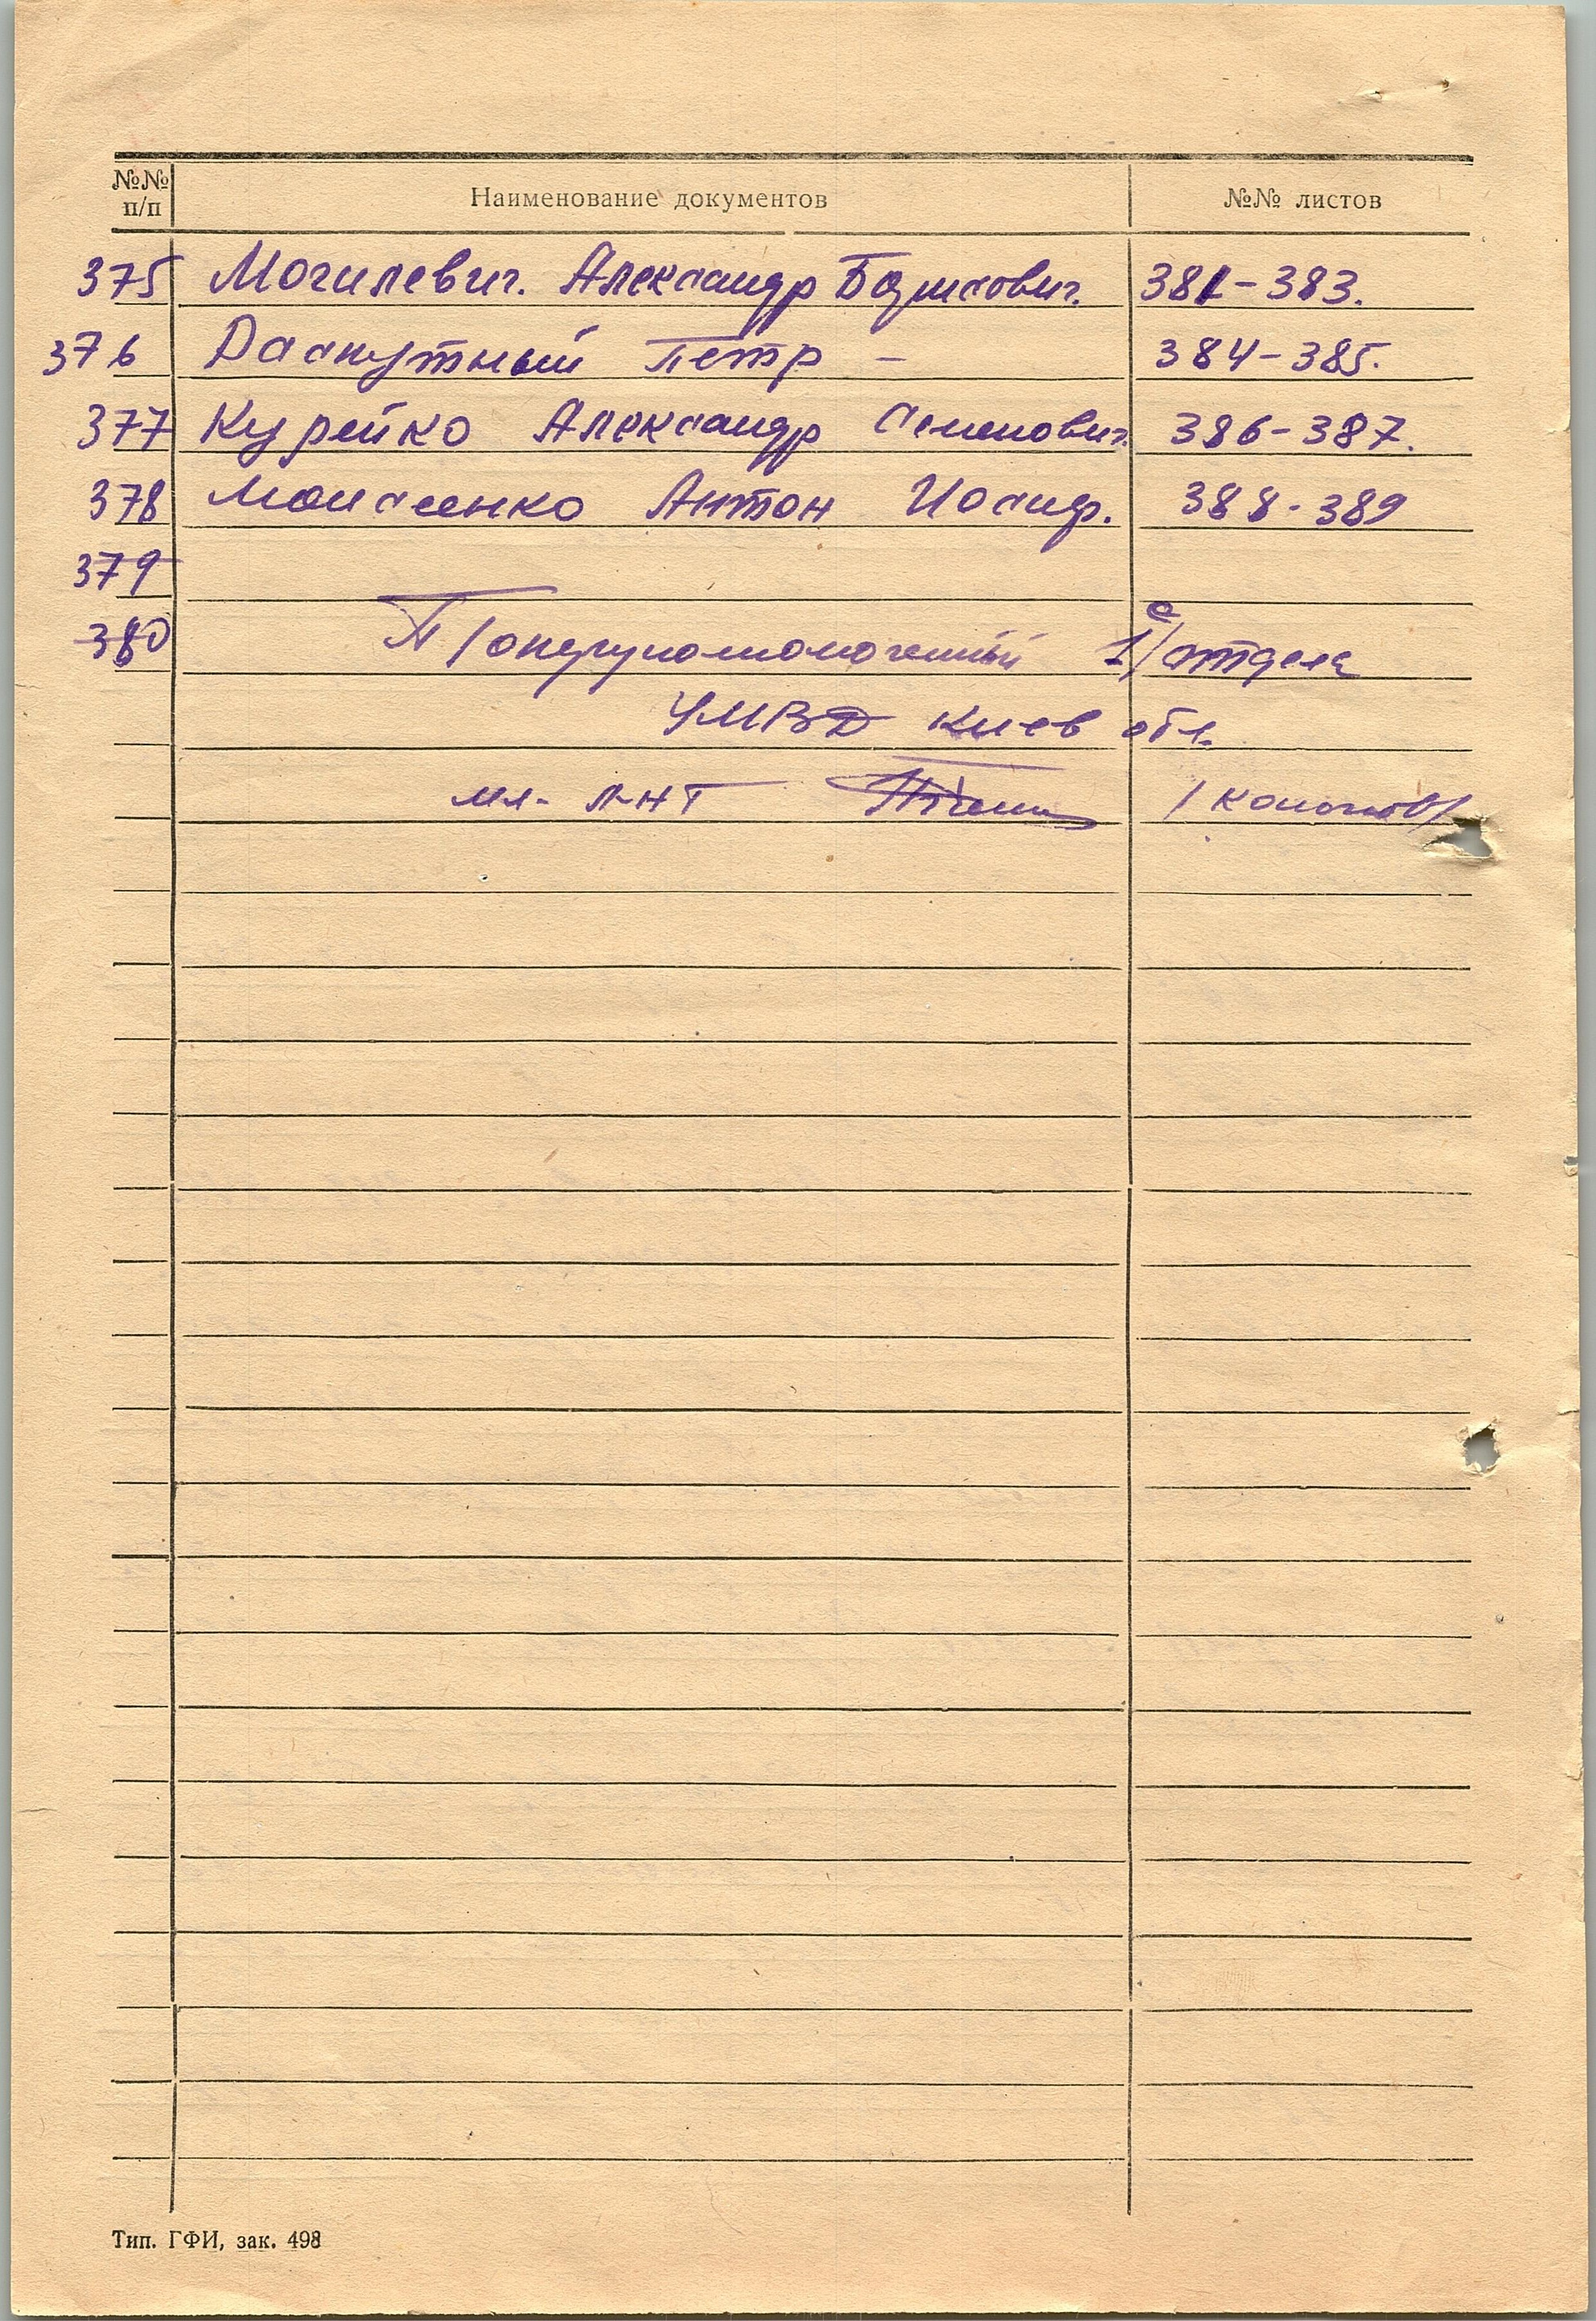 №№ п/п Наименование документов №№ листов
375 Могилевич. Александр Борисович. 381-383.
376 Распутный Петр - 384-385.
377 Курейко Александр Семенович. 386-387.
378 Моисеенко Антон Иосиф. 388-389
379
380 П/оперуполномоченный 1/отдела
УМВД Киев обл.
мл. л-нт
Тип. ГФИ, зак. 498